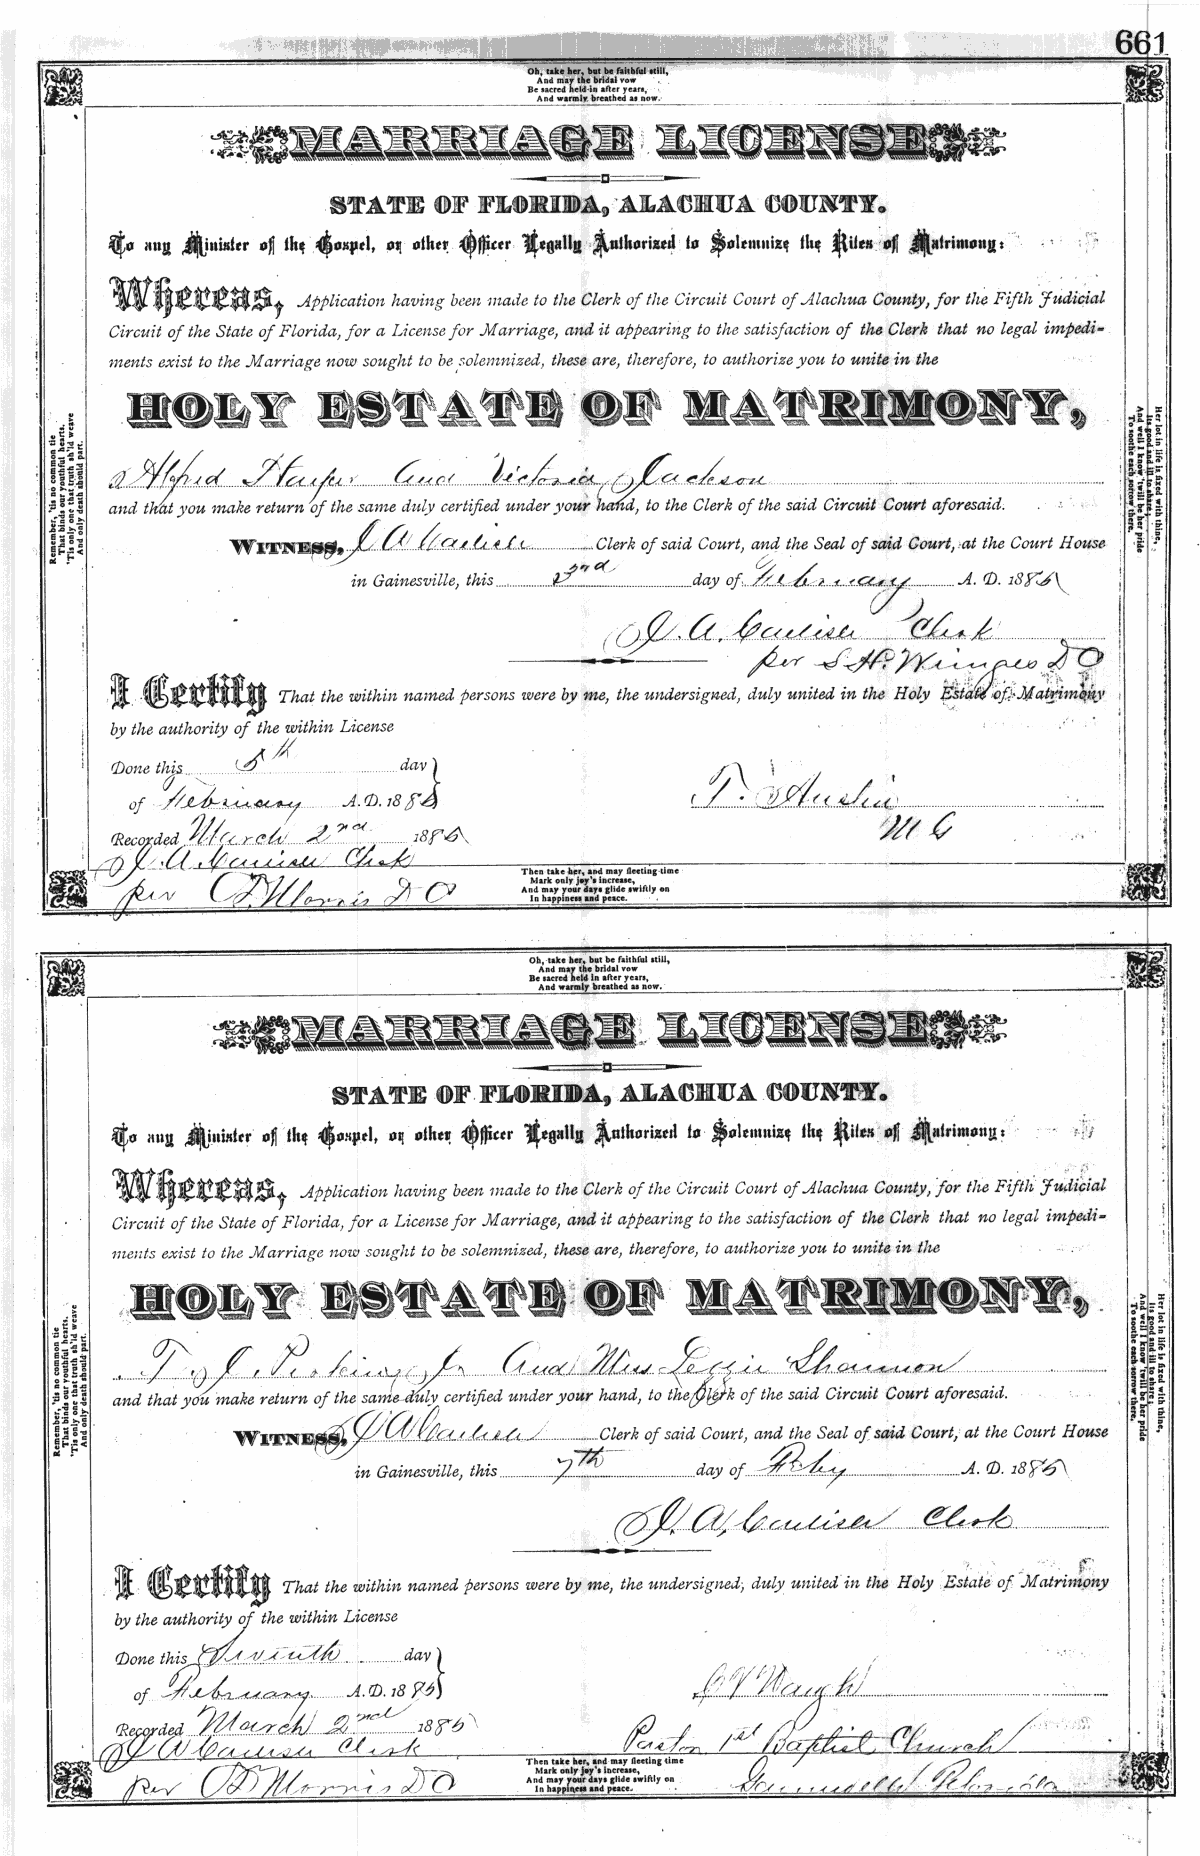 661
Oh, take her, but be faithful still,
And may the bridal vow
Be sacred held in after years,
And warmly breathed as now.
MARRIAGE LICENSE
STATE OF FLORIDA, ALACHUA COUNTY.
To any Minister of the Gospel, or other Officer Legally Authorized to Solemnize the Rites of Matrimony:
Whereas, Application having been made to the Clerk of the Circuit Court of Alachua County, for the Fifth Judicial
Circuit of the State of Florida, for a License for Marriage, and it appearing to the satisfaction of the Clerk that no legal impedi-
ments exist to the Marriage now sought to be solemnized, these are, therefore, to authorize you to unite in the
HOLY ESTATE OF MATRIMONY,
Alfred Harper and Victoria Jackson
and that you make return of the same duly certified under your hand, to the Clerk of the said Circuit Court aforesaid.
WITNESS, J A Carlisle Clerk of said Court, and the Seal of said Court, at the Court House
in Gainesville, this 3rd day of February A. D. 1885
J. A. Carlisle Clerk
per S. H. Wienges D C
I Certify That the within named persons were by me, the undersigned, duly united in the Holy Estate of Matrimony
by the authority of the within License
Done this 5th day
of February A. D. 1885
T. Austin
M G
Recorded March 2nd 1885
J. A. Carlisle Clerk
per C. D. Morris D C
Remember, 'tis no common tie
That binds our youthful hearts,
'Tis only one that truth sh'ld weave
And only death should part.
Her lot in life is fixed with thine,
Its good and ill to share;
And well I know 'twill be her pride
To soothe each sorrow there.
Then take her, and may fleeting time
Mark only joy's increase,
And may your days glide swiftly on
In happiness and peace.
Oh, take her, but be faithful still,
And may the bridal vow
Be sacred held in after years,
And warmly breathed as now.
MARRIAGE LICENSE
STATE OF FLORIDA, ALACHUA COUNTY.
To any Minister of the Gospel, or other Officer Legally Authorized to Solemnize the Rites of Matrimony:
Whereas, Application having been made to the Clerk of the Circuit Court of Alachua County, for the Fifth Judicial
Circuit of the State of Florida, for a License for Marriage, and it appearing to the satisfaction of the Clerk that no legal impedi-
ments exist to the Marriage now sought to be solemnized, these are, therefore, to authorize you to unite in the
HOLY ESTATE OF MATRIMONY,
T. J. Perkins Jr and Miss Lizzie Shannon
and that you make return of the same duly certified under your hand, to the Clerk of the said Circuit Court aforesaid.
WITNESS, J A Carlisle Clerk of said Court, and the Seal of said Court, at the Court House
in Gainesville, this 7th day of Feby A. D. 1885
J. A. Carlisle Clerk
I Certify That the within named persons were by me, the undersigned, duly united in the Holy Estate of Matrimony
by the authority of the within License
Done this Seventh day
of February A. D. 1885
C V Waugh
Recorded March 2nd 1885
Pastor 1st Baptist Church
J A Carlisle Clerk
Gainesville Florida
per C D Morris D C
Remember, 'tis no common tie
That binds our youthful hearts,
'Tis only one that truth sh'ld weave
And only death should part.
Her lot in life is fixed with thine,
Its good and ill to share;
And well I know 'twill be her pride
To soothe each sorrow there.
Then take her, and may fleeting time
Mark only joy's increase,
And may your days glide swiftly on
In happiness and peace.